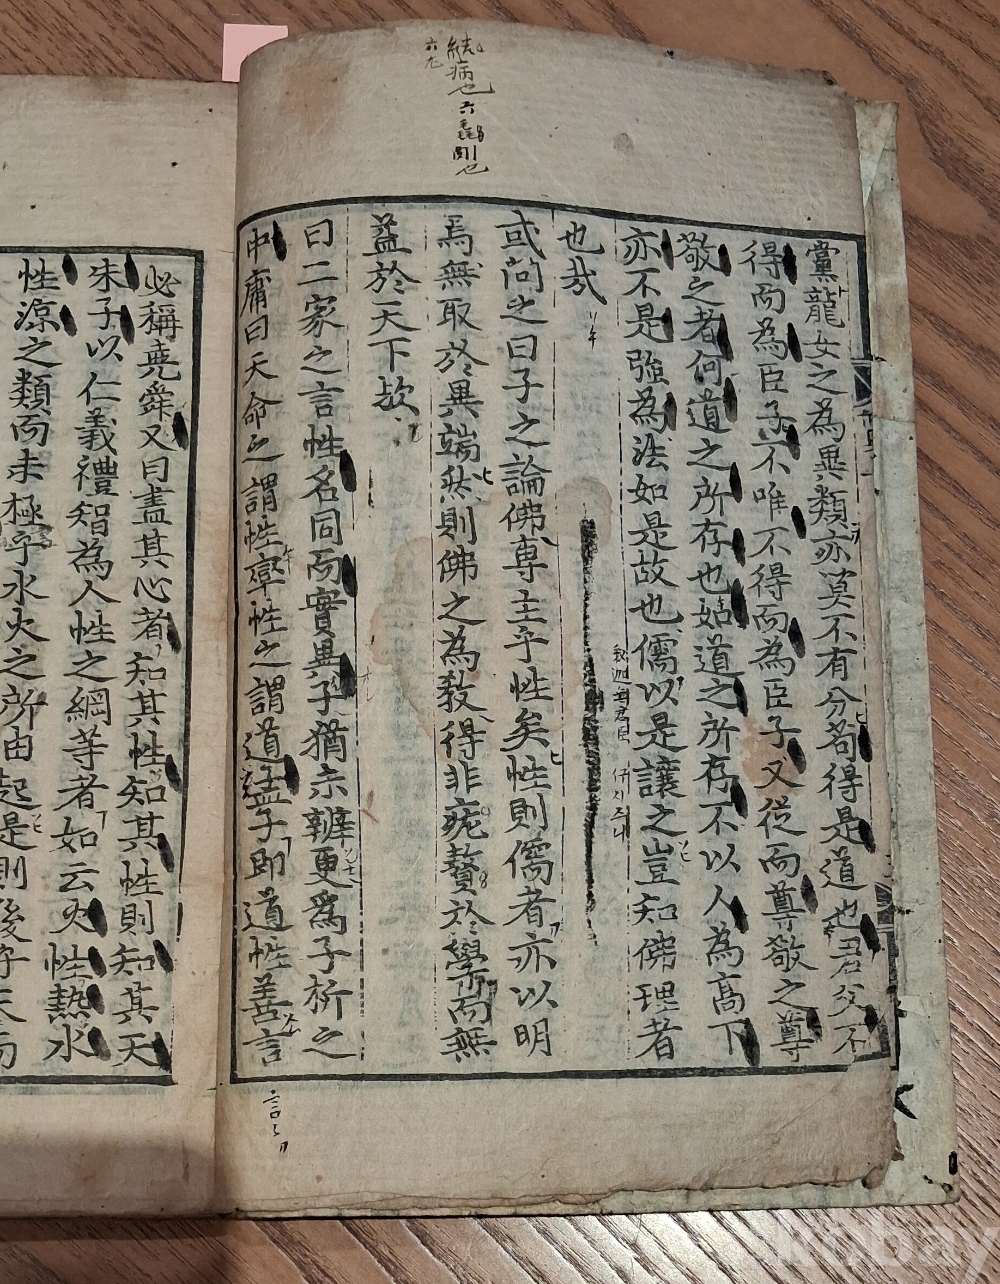 黨龍女之為異類亦莫不有分苟得是道也君父不
得而為臣子不唯不得而為臣子又從而尊敬之尊
敬之者何道之所存也姑道之所存不以人為高下
亦不是強為法如是故也儒以是讓之豈知佛理者
也哉
或問之曰子之論佛專主乎性矣性則儒者亦以明
焉無取於異端然則佛之為教得非疣贅於學而無
益於天下欤
曰二家之言性名同而實異子猶未辨更為子析之
中庸曰天命之謂性率性之謂道孟子即道性善言
必稱堯舜又曰盡其心者知其性知其性則知其天
朱子以仁義禮智為人性之綱等者如云火性熱水
性凉之類而未極乎水火之所由起是則後
疣病也
knbay